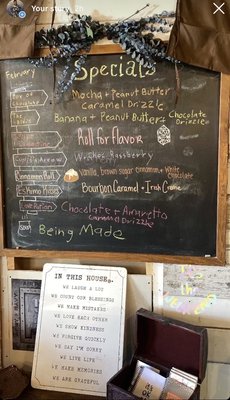 Your story 2h
February
Specials
Mocha + Peanut Butter
Caramel Drizzle
Banana + Peanut Butter + Chocolate
Drizzle
Roll for Flavor
Raspberry
Vanilla, brown sugar cinnamon + White
chocolate
Cinnamon Roll
Eskimo
Bourbon Caramel + Irish Creme
Chocolate + Amaretto
Caramel Drizzle
Soup
Being Made
IN THIS HOUSE,
WE LAUGH A LOT
WE COUNT OUR BLESSINGS
WE MAKE MISTAKES
WE LOVE EACH OTHER
WE SHOW KINDNESS
WE FORGIVE QUICKLY
WE SAY I'M SORRY
WE LIVE LIFE
WE MAKE MEMORIES
WE ARE GRATEFUL